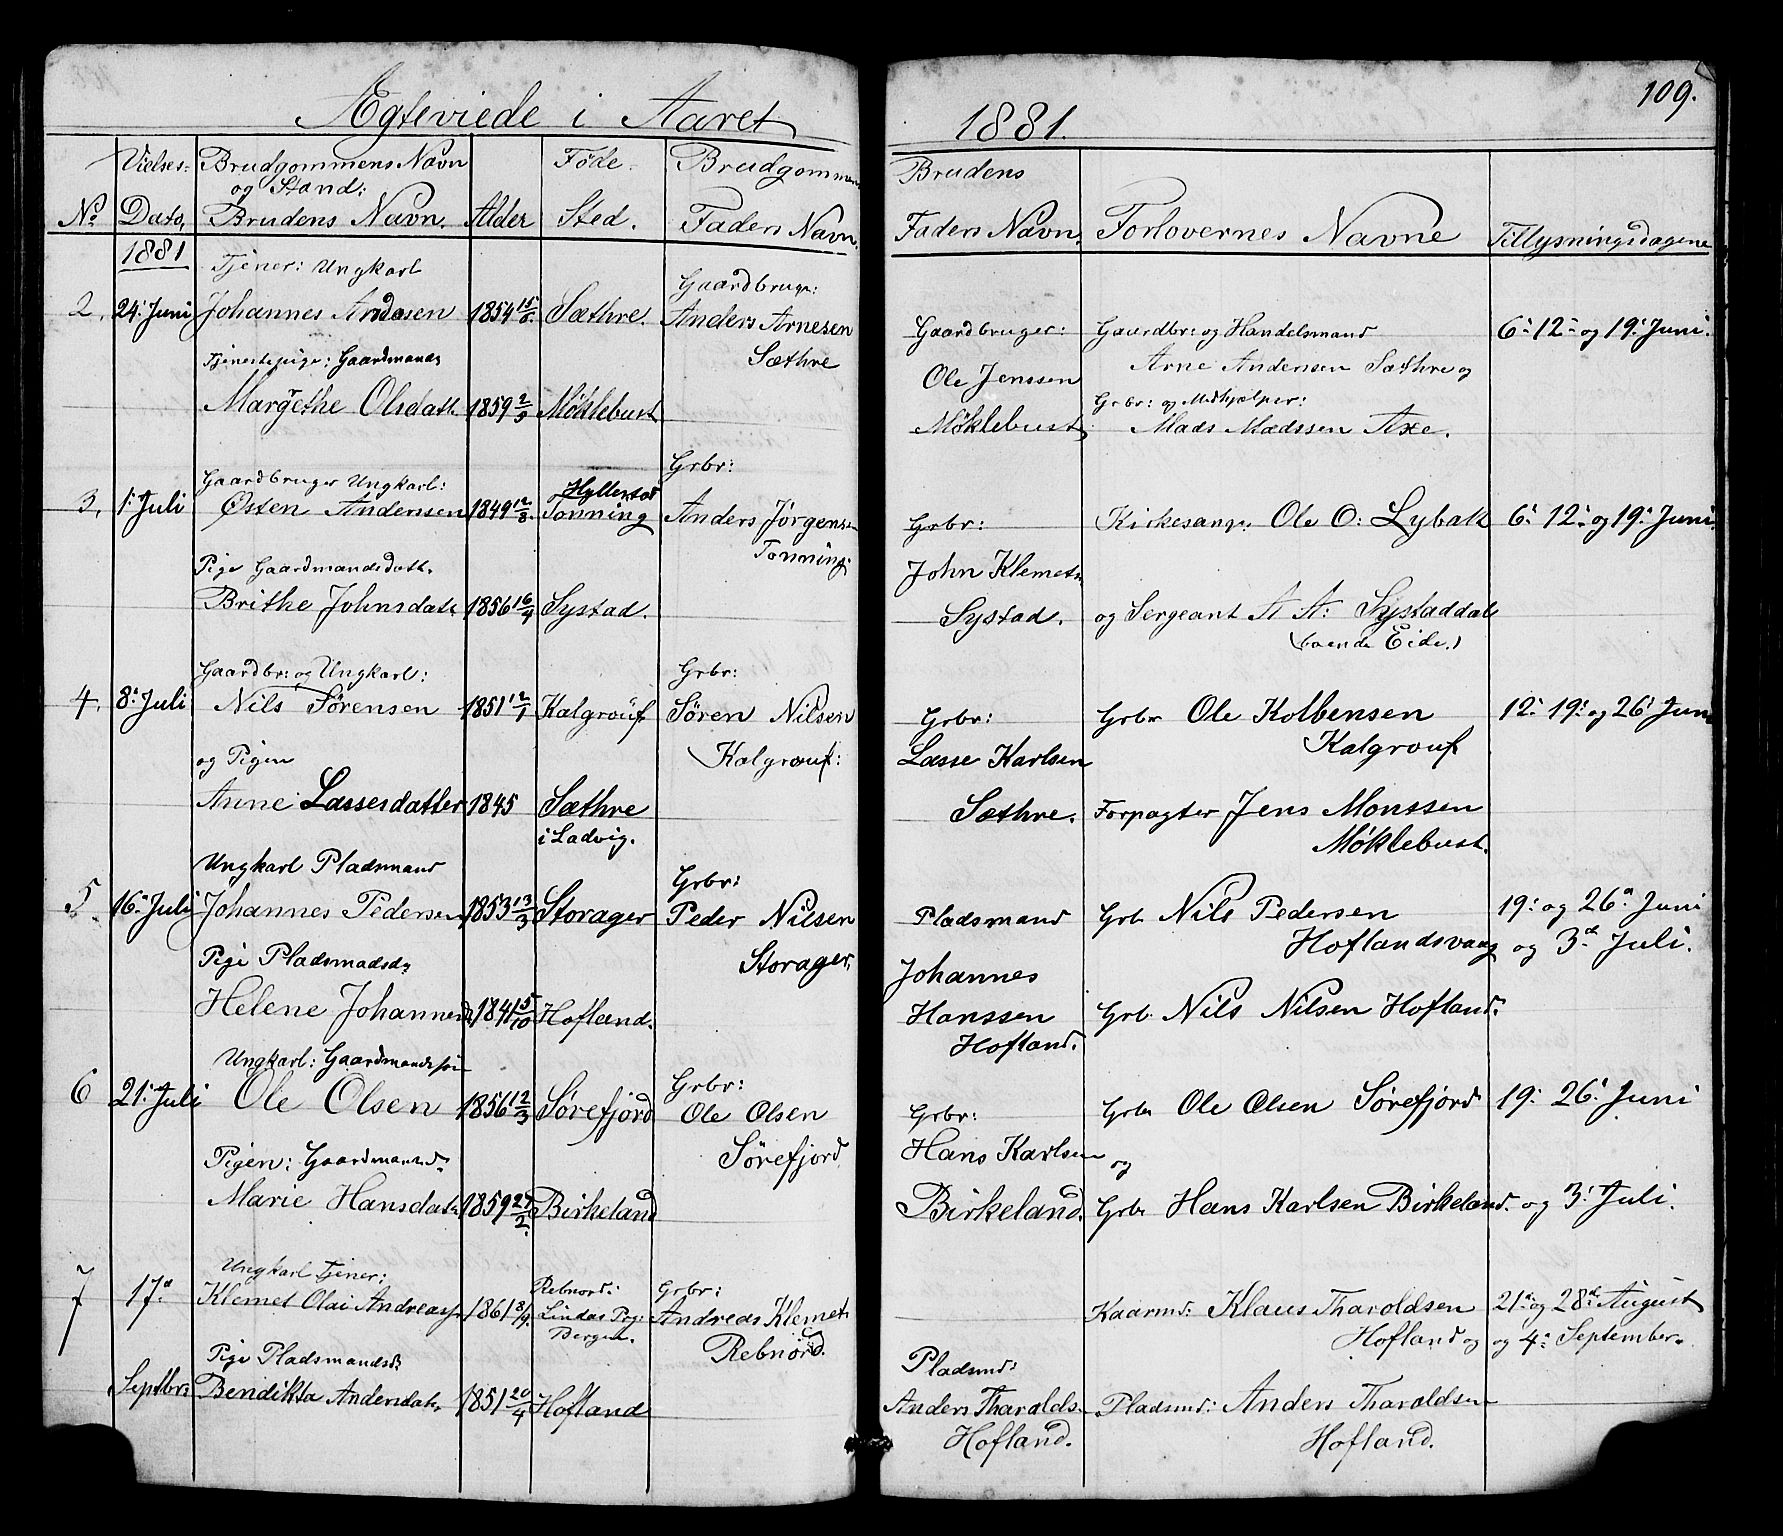 109.
Ægteviede i Aaret 1881.
No
Vielses: Dato,
Brudgommens Navn og Stand: Brudens Navn.
Alder
Føde. Sted.
Brudgommens Faders Navn.
Brudens Faders Navn.
Forlovernes Navne
Tillysningsdagene
1881
Tjener: Ungkarl
Gaardbruger:
2, 24: Juni Johannes Andersen 1854 15/6 Sæthre. Anders Arnesen
Sæthre
Tjenestepige: Gaardmands
Margrethe Olsdatt. 1859 2/9 Møklebust
Gaardbruger:
Ole Jenssen
Møklebust
Gaardbr: og Handelsmand
Arne Andersen Sæthre og
Grbr: og Medhjælper:
Mads Madssen Axe.
6: 12: og 19: Juni.
Gaardbruger Ungkarl:
Grbr:
3, 1: Juli Østen Andersen 1849 12/8 Hyllestad Tonning Anders Jørgensen
Tonning:
Pige Gaardmandsdatt.
Brithe Johnsdatt. 1856 16/4 Systad.
Grbr:
John Klemets.
Systad.
Kirkesang. Ole O: Lybak
og Sergeant A A: Systaddal
(boende Eide.)
6: 12: og 19: Juni.
Gaardbr: og Ungkarl:
Grbr:
4, 8: Juli Nils Sørensen 1851 12/1 Kalgrouf Søren Nilsen
Kalgrouf:
og Pigen
Anne Lassesdatter 1845 Sæthre
i Ladvig.
Grbr:
Lasse Karlsen
Sæthre.
Grbr Ole Kolbensen
Kalgrouf
Forpagter Jens Monssen
Møklebust.
12: 19: og 26: Juni
Ungkarl Pladsmand
Grbr:
5. 16: Juli Johannes Pedersen 1853 13/3 Storager Peder Nilsen
Storager.
Pige Pladsmadsd.
Helene Johannesd. 1841 5/10 Hofland.
Pladsmand
Johannes
Hanssen
Hofland.
Grb. Nils Pedersen
Hoflandsvaag
Grb. Nils Nilsen Hofland.
19: og 26: Juni
og 3: Juli.
Ungkarl: Gaardmandssøn
Grbr:
6 21: Juli Ole Olsen 1856 12/3 Sørefjord Ole Olsen
Sørefjord
Pigen: Gaardmandsd.
Marie Hansdatt. 1859 27/2. Birkeland
Grbr:
Hans Karlsen
Birkeland.
Grbr Ole Olsen Sørefjord
og
Grbr Hans Karlsen Birkeland.
19: 26: Juni
og 3: Juli.
Ungkarl Tjener:
Grbr:
7 17: Septbr: Klemet Olai Andreass. 1861 3/9. Rebnord: Lindas Prg: Bergen. Andreas Klemets.
Rebnord.
Pige Pladsmandsd:
Bendikta Andersdatt. 1851 20/4 Hofland
Pladsmd:
Anders Tharalds.
Hofland.
Kaarmd: Klaus Tharoldsen
Hofland og
Pladsmd: Anders Tharoldsen
Hofland.
21: og 28: August
og 4: September.